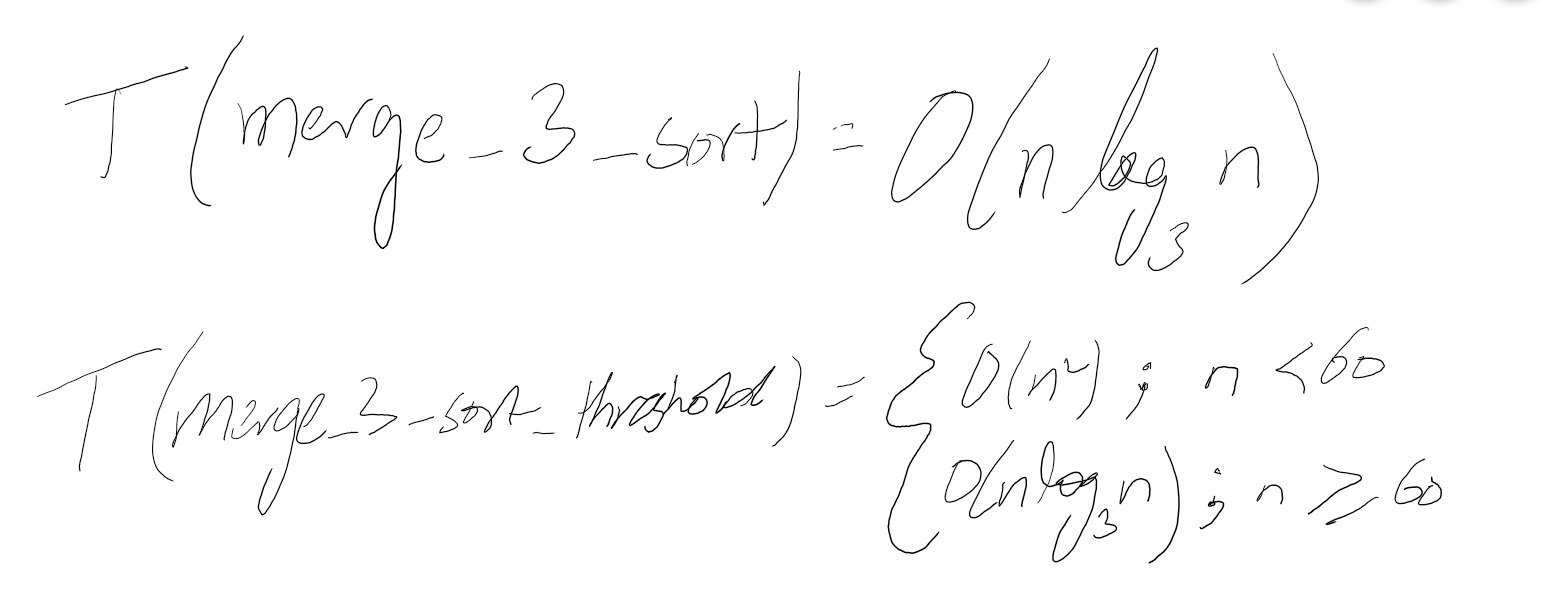 T(merge_3_sort) = O(n log₃ n)
T(merge_3_sort_threshold) = { O(n²) ; n < 60
O(n log₃ n) ; n ≥ 60